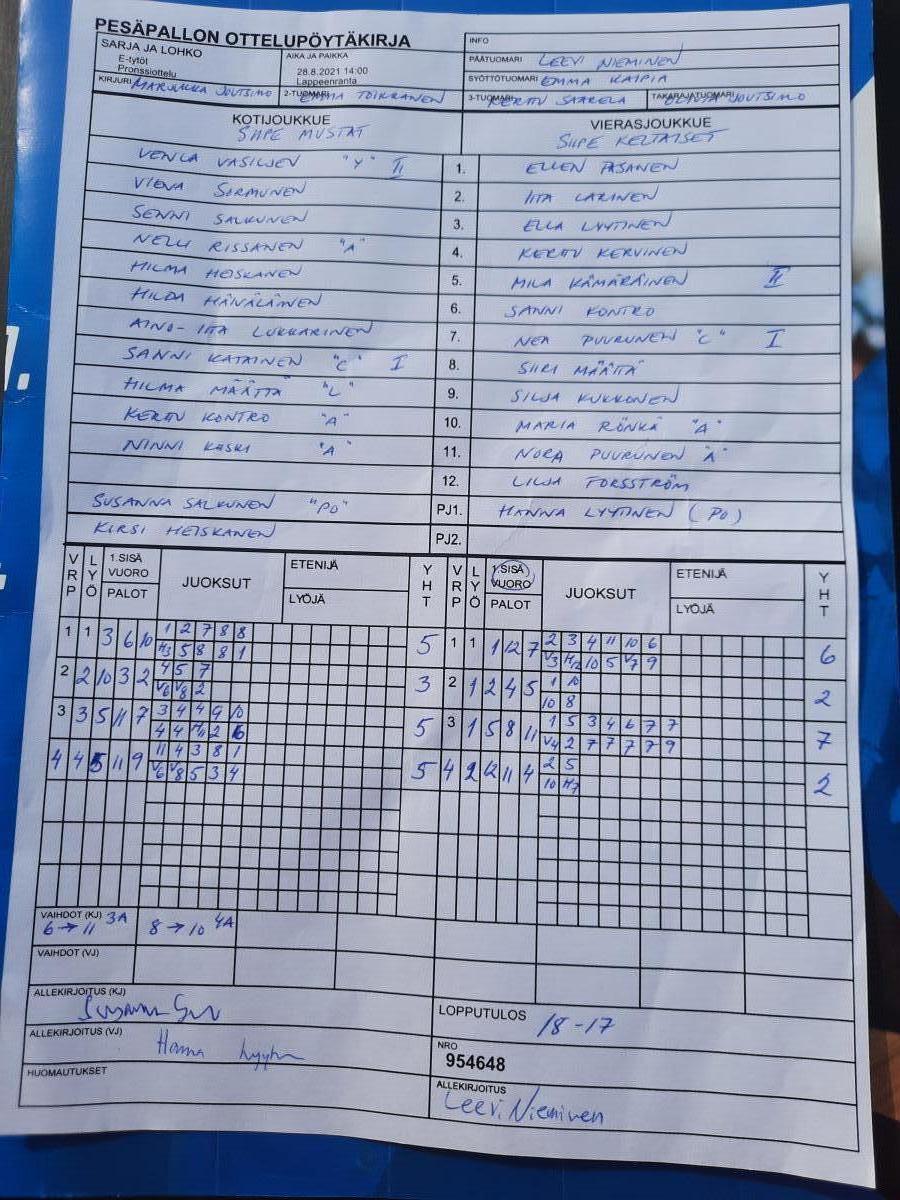 PESÄPALLON OTTELUPÖYTÄKIRJA
SARJA JA LOHKO
E-tytöt
Pronssiottelu
AIKA JA PAIKKA
28.8.2021 14:00
Lappeenranta
INFO
PÄÄTUOMARI LEEVI NIEMINEN
SYÖTTÖTUOMARI EMMA KAIPIA
KIRJURI MARJUKKA JOUTSIMO
2-TUOMARI EMMA TOIKKANEN
3-TUOMARI KERTTU SAARELA
TAKARAJATUOMARI OLIVIA JOUTSIMO
KOTIJOUKKUE
SIIPE MUSTAT
VIERASJOUKKUE
SIIPE KELTAISET
VENLA VASILJEV "Y" II 1. ELLEN PASANEN
VIENA SORMUNEN 2. IITA LARINEN
SENNI SALKUNEN 3. ELLA LYYTINEN
NELLI RISSANEN "A" 4. KERTTU KERVINEN
HILMA HEISKANEN 5. MILA KÄMÄRÄINEN II
HILDA HÄIVÄLÄINEN 6. SANNI KONTRO
AINO-IITA LUKKARINEN 7. NEA PUURUNEN "C" I
SANNI KATAINEN "C" I 8. SIIRI MÄÄTTÄ
HILMA MÄÄTTÄ "L" 9. SILJA KUKKONEN
KERTTU KONTRO "A" 10. MARIA RÖNKÄ "A"
NINNI KASKI "A" 11. NORA PUURUNEN "A"
12. LILJA TORSSTRÖM
SUSANNA SALKUNEN "PO" PJ1. HANNA LYYTINEN (PO)
KIRSI HEISKANEN PJ2.
VRP LYÖ 1.SISÄ VUORO PALOT JUOKSUT ETENIJÄ LYÖJÄ YHT VRP LYÖ 1.SISÄ VUORO PALOT JUOKSUT ETENIJÄ LYÖJÄ YHT
1 1 3 6 10 1 2 7 8 8 5 1 1 1 12 7 2 3 4 11 10 6 6
H3 5 8 8 1 V3 H12 10 5 V7 9
2 2 10 3 2 4 5 7 3 2 1 2 4 5 1 10 2
V6 V8 2 10 8
3 3 5 11 7 3 4 4 9 10 5 3 1 5 8 11 1 5 3 4 6 7 7 7
4 4 H11 2 6 V4 2 7 7 7 7 9
4 4 5 11 9 11 4 3 8 1 5 4 2 12 11 4 2 5 2
V6 V8 5 3 4 10 H7
VAIHDOT (KJ)
6 → 11 3A 8 → 10 4A
VAIHDOT (VJ)
ALLEKIRJOITUS (KJ)
LOPPUTULOS 18-17
ALLEKIRJOITUS (VJ) Hanna Lyytinen
NRO
954648
HUOMAUTUKSET
ALLEKIRJOITUS
Leevi Nieminen